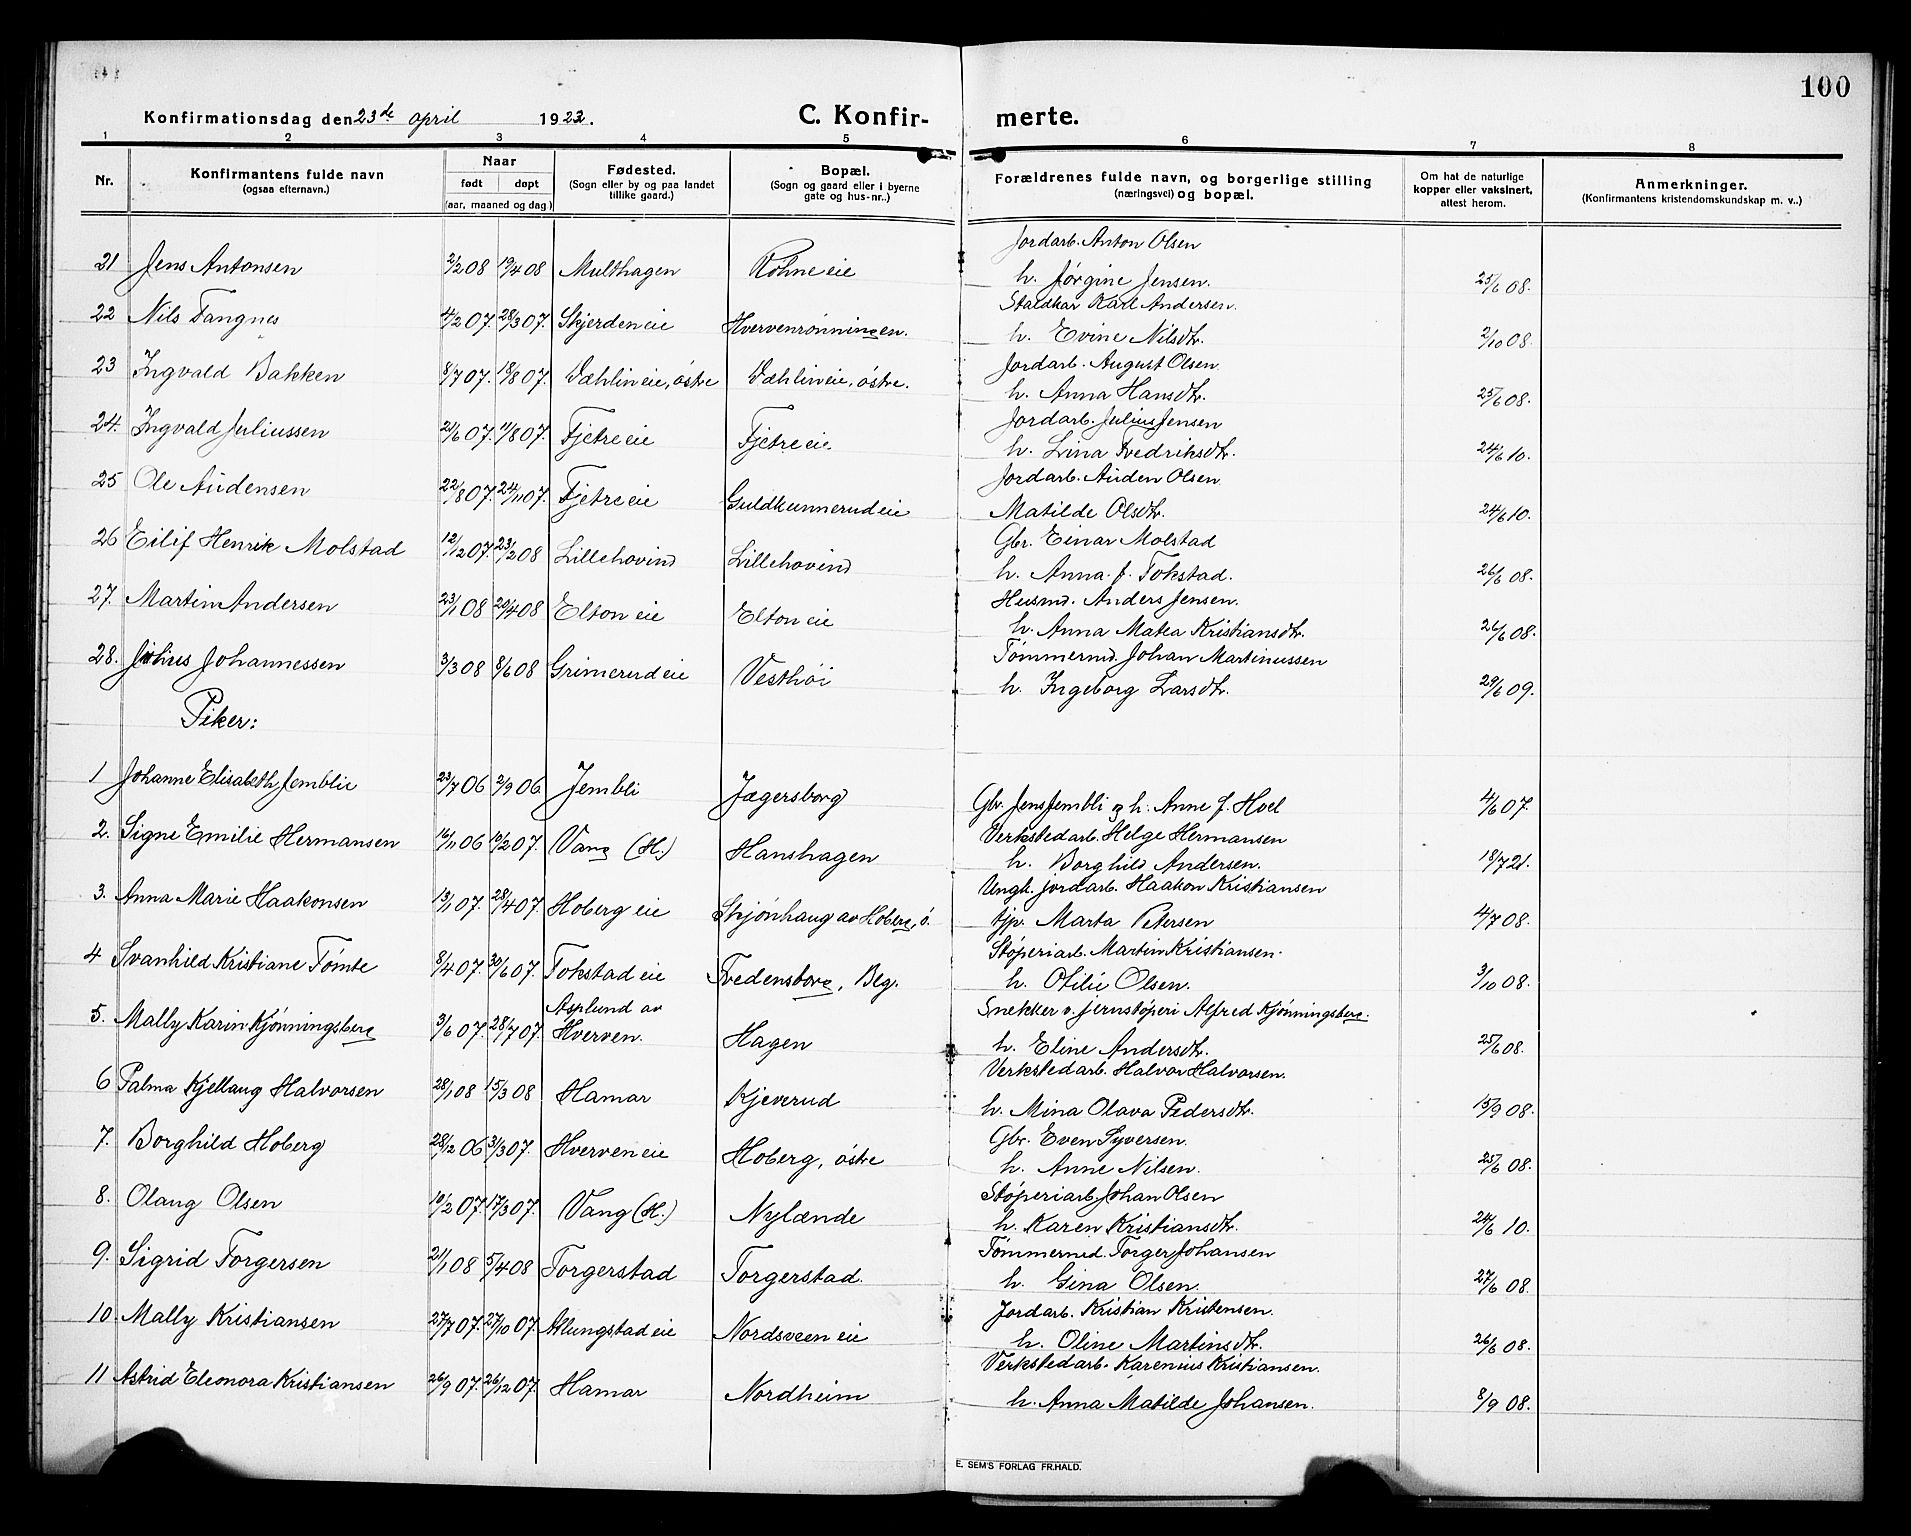 100
Konfirmationsdag den 23de april 1922. C. Konfir- merte.
1 2 3 4 5 6 7 8
Nr. Konfirmantens fulde navn (ogsaa efternavn.) Naar født døpt (aar, maaned og dag) Fødested. (Sogn eller by og paa landet tillike gaard.) Bopæl. (Sogn og gaard eller i byerne gate og hus-nr..) Forældrenes fulde navn, og borgerlige stilling (næringsvei) og bopæl. Om hat de naturlige kopper eller vaksinert, attest herom. Anmerkninger. (Konfirmantens kristendomskundskap m. v..)
21 Jens Antonsen 2/2 08 19/4 08 Multhagen Rohne eie Jordarb. Anton Olsen
h. Jørgine Jensen. 25/6 08.
22 Nils Fangnes 4/2 07. 28/3 07. Skjerden eie Hvervenrønningen. Staldkar Karl Andersen.
h. Evine Nilsdtr. 2/10 08.
23 Ingvald Bakken 8/7 07. 18/8 07. Dæhlin eie, østre Dæhlin eie, østre. Jordarb. August Olsen.
h. Anna Hansdtr. 25/6 08.
24. Ingvald Juliussen 21/6 07. 11/8 07. Fjetre eie Fjetre eie. Jordarb. Julius Jensen
h. Lina Fredriksdtr. 24/6 10.
25 Ole Audensen 22/8 07. 24/11 07. Fjetre eie Guldkunnerud eie Jordarb. Auden Olsen.
Matilde Olsdtr. 24/6 10.
26 Eilif Henrik Molstad 12/12 07. 23/2 08 Lillehovind Lillehovind Gbr. Einar Molstad
h. Anna f. Tokstad. 26/6 08.
27. Martin Andersen 23/1 08 20/4 08 Elton eie Elton eie Husmd. Anders Jensen.
h. Anna Matea Kristiansdtr. 26/6 08.
28. Julius Johannessen 3/3 08 8/6 08 Grimerud eie Vesthøi Tømmermd. Johan Martinussen
h. Ingeborg Larsdtr. 29/6 09.
Piker:
1 Johanne Elisabeth Jemblie 23/7 06 2/9 06 Jembli Jægersborg Gbr. Jens Jembli og h. Anne f. Hoel 4/6 07.
2. Signe Emilie Hermansen 16/11 06 10/2 07. Vang (H.) Hanshagen Verkstedarb. Helge Hermansen
h. Borghild Andersen. 18/7 21.
3. Anna Marie Haakonsen 13/1 07. 28/4 07. Hoberg eie Skjønhaug av Hoberg, ø. Ungk. jordarb. Haakon Kristiansen
tjp. Marta Petersen 4/7 08.
4 Svanhild Kristiane Tømte 8/4 07. 30/6 07. Tokstad eie Fredensborg, Blg. Støperiarb. Martin Kristiansen.
h. Otilie Olsen. 3/10 08.
5. Mally Karin Kjønningsberg 3/6 07. 28/7 07. Asplund av Hverven. Hagen Snekker v. jernstøperi Alfred Kjønningsberg.
h. Eline Andersdtr. 25/6 08.
6 Palma Kjellaug Halvorsen 28/1 08 15/3 08 Hamar Kjeverud Verkstedarb. Halvor Halvorsen.
h. Mina Olava Pedersdtr. 15/9 08.
7. Borghild Hoberg 28/12 06 31/3 07. Hverven eie Hoberg, østre Gbr. Even Syversen.
h. Anne Nilsen. 25/6 08.
8. Olaug Olsen 10/2 07. 17/3 07. Vang (H.) Nylænde Støperiarb. Johan Olsen
h. Karen Kristiansdtr. 24/6 10.
9. Sigrid Torgersen 21/1 08 5/4 08 Torgerstad Torgerstad. Tømmermd. Torger Johansen
h. Gina Olsen. 27/6 08.
10. Mally Kristiansen 27/7 07. 27/10 07. Allungstad eie Nordsveen eie Jordarb. Kristian Kristensen.
h. Oline Martinsdtr. 26/6 08.
11 Astrid Eleonora Kristiansen 26/9 07. 26/12 07. Hamar Nordheim Verkstedarb. Karenius Kristiansen.
h. Anna Matilde Johansen. 8/9 08.
E. SEM'S FORLAG FR.HALD.